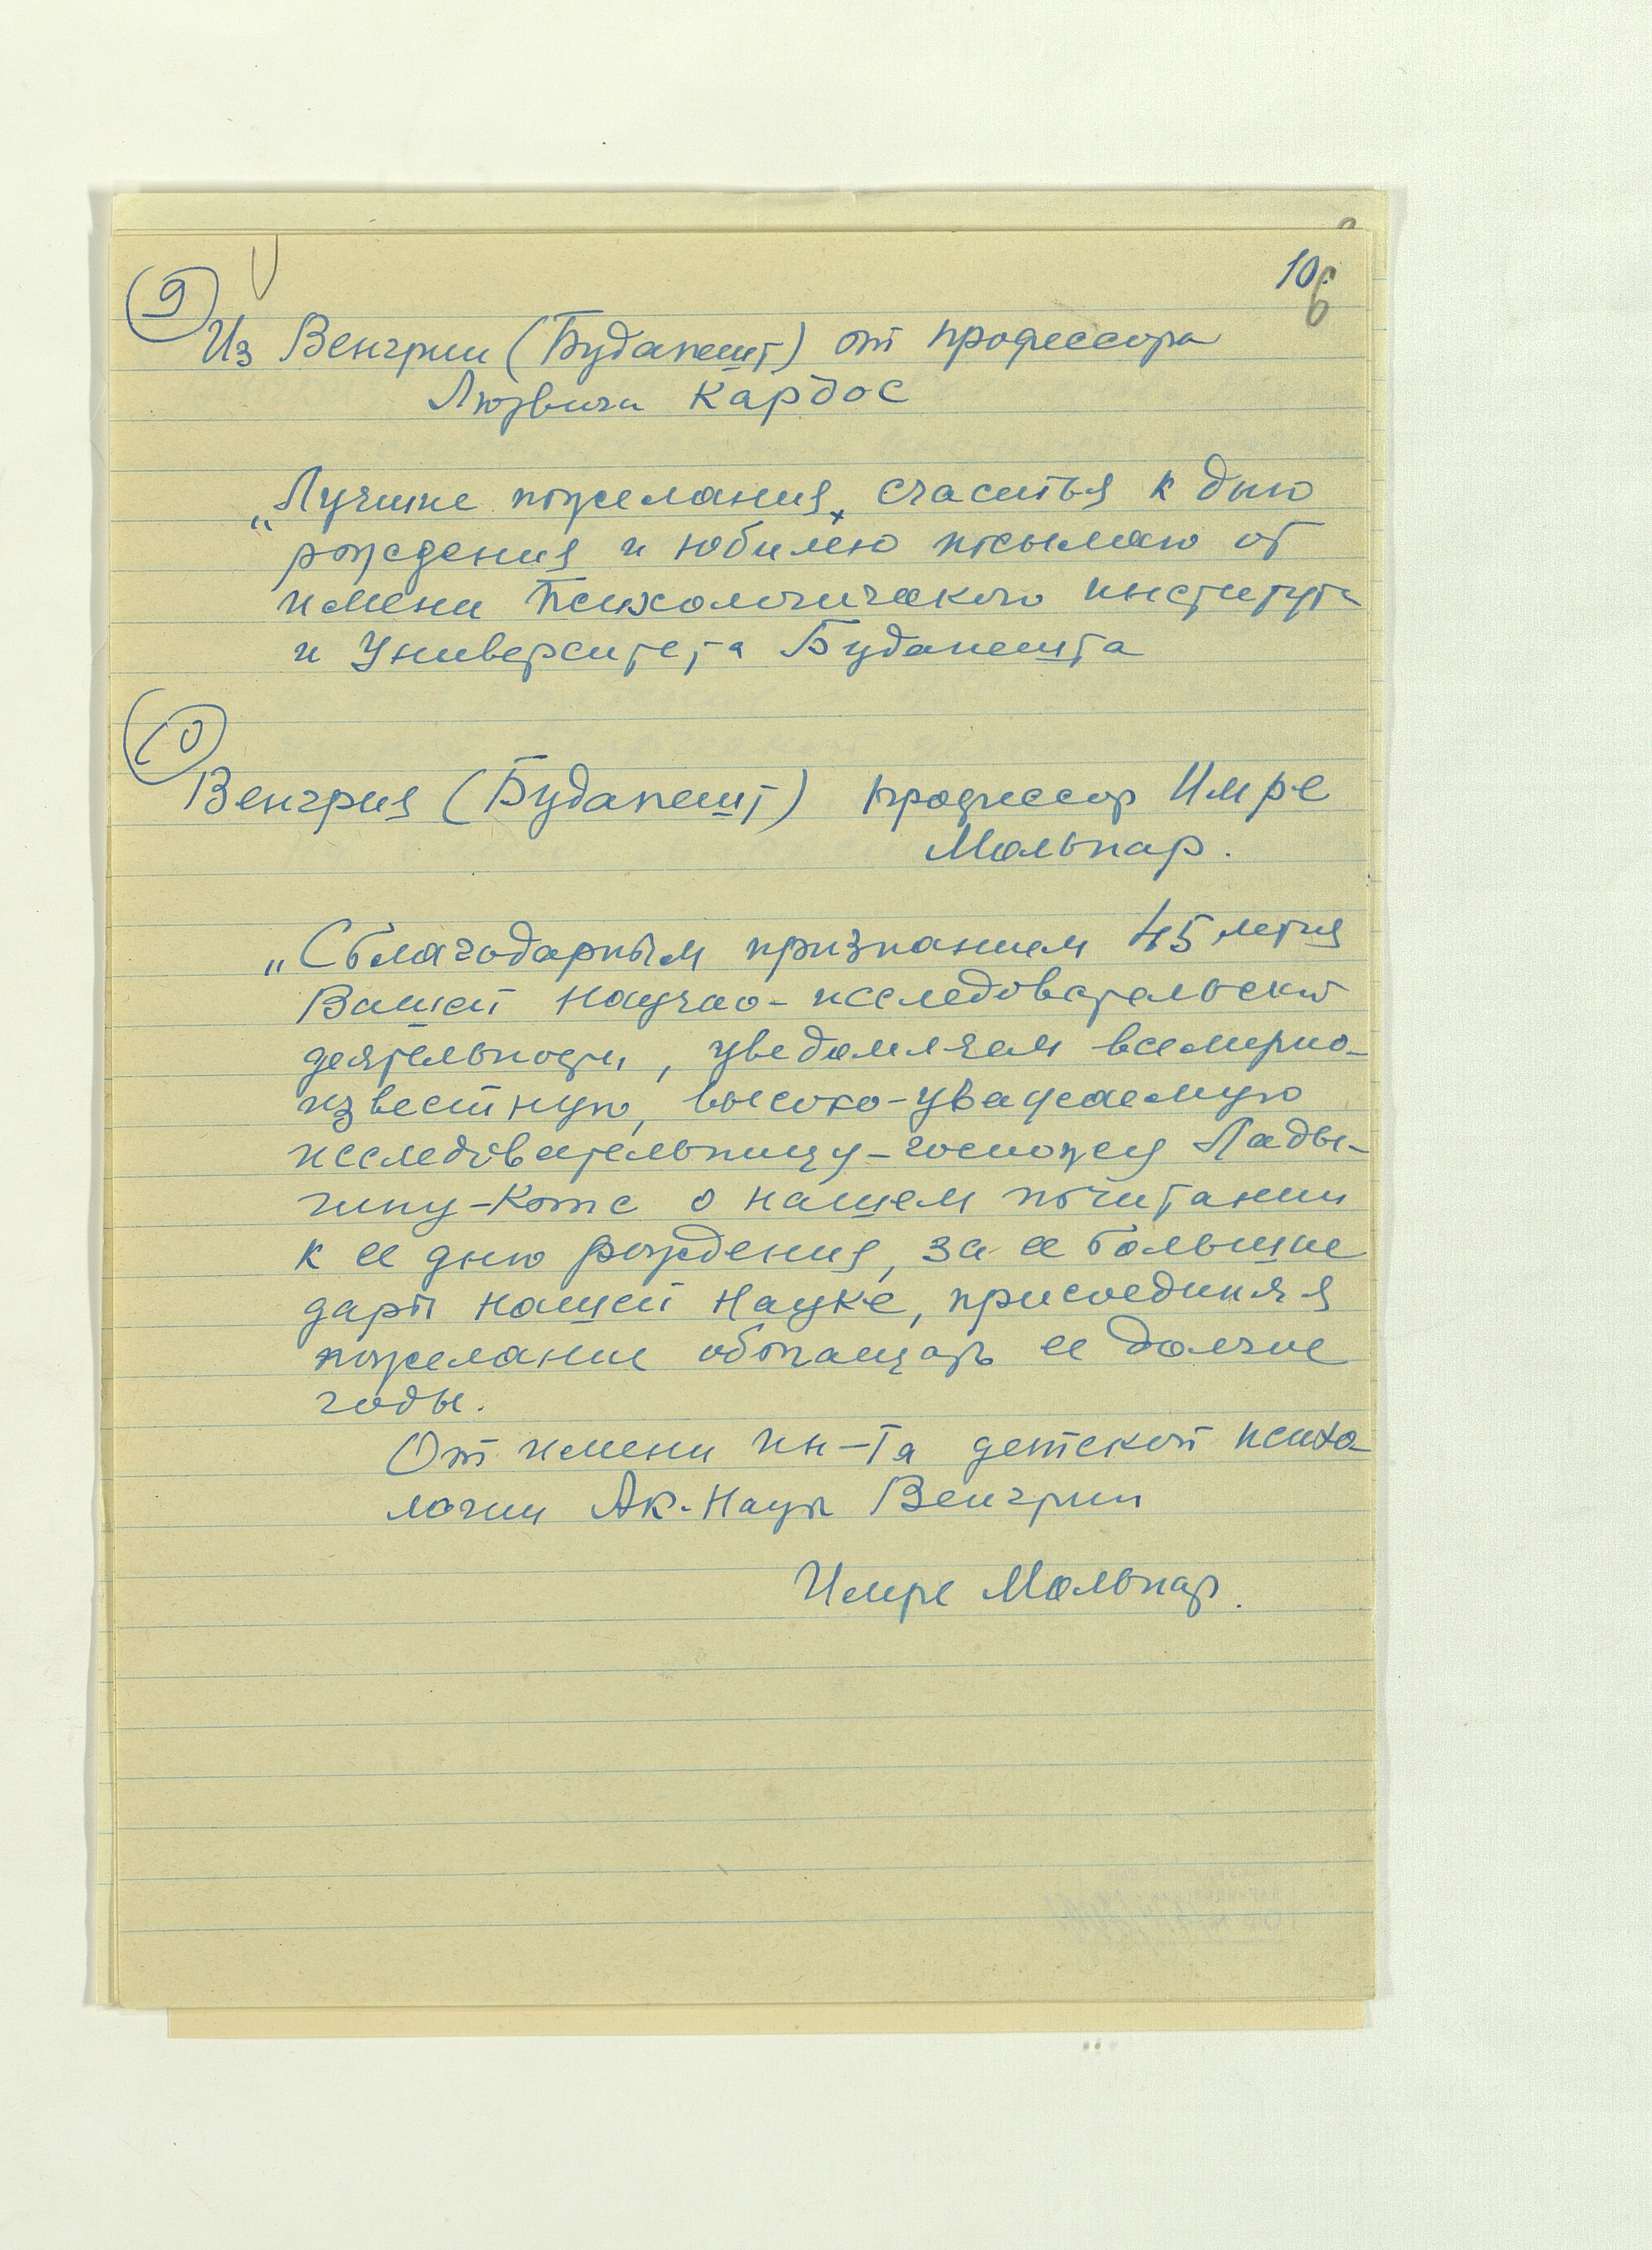 10.
6
9
Из Венгрии (Будапешт) от профессора
Людвига Кардос
„Лучшие пожелания, счастья к дню
рождения и юбилею посылаю от
имени Психологического института
и Университета Будапешта
10
Венгрия (Будапешт) профессор Имре
Мольнар.
„С благодарным признанием 45 летия
Вашей научно-исследовательской
деятельности, уведомляем всемирно-
известную, высоко-уважаемую
исследовательницу-госпожу Лады-
гину-Котс о нашем почитании
к ее дню рождения, за ее большие
дары нашей науке, присоединяя
пожелание обогащать ее долгие
годы.
От имени ин-та детской психо-
логии Ак. Наук Венгрии
Имре Мольнар.